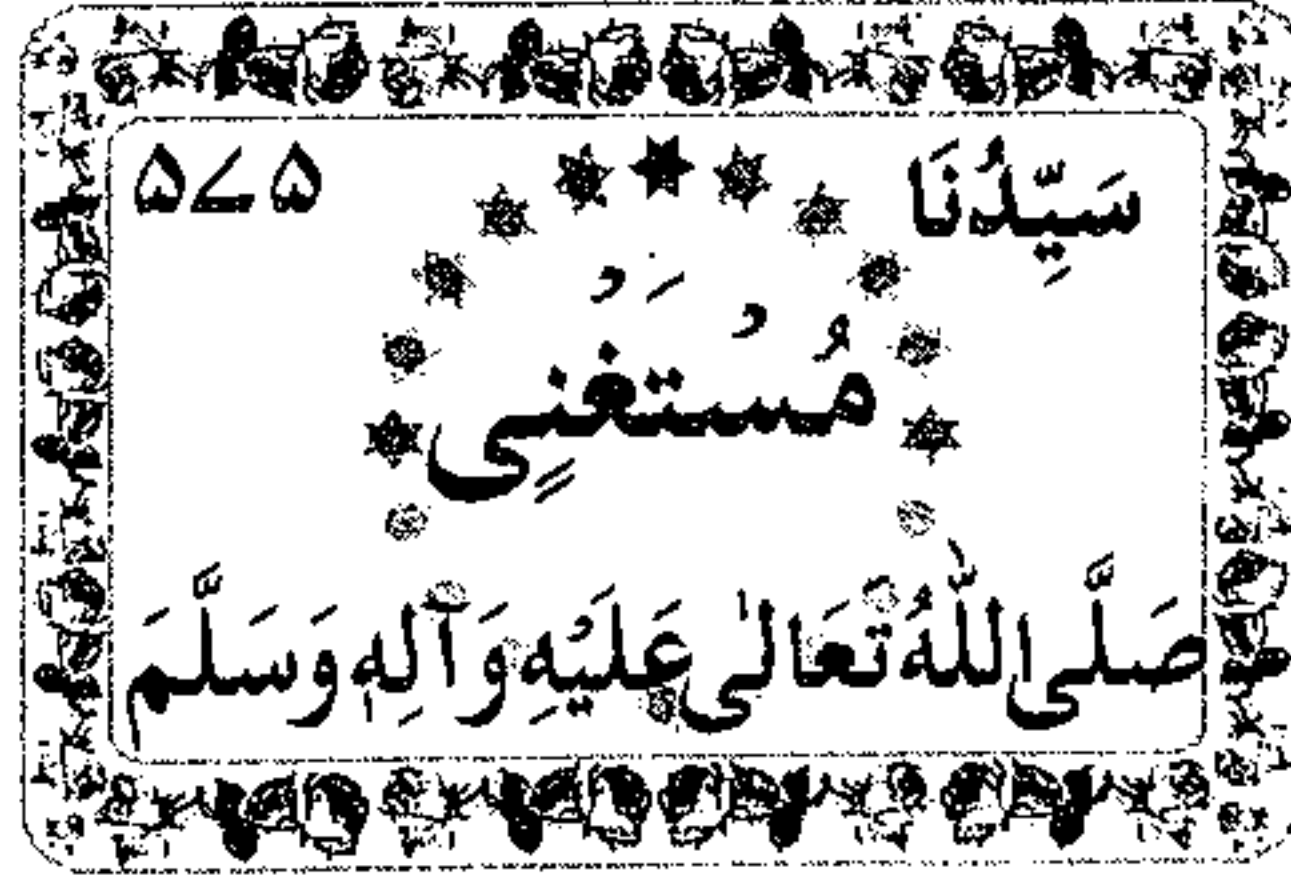 سَيِّدُنَا ۵۷۵
مُسْتَغْنَيٍ
صَلَّى اللّٰهُ تَعَالٰى عَلَيْهِ وَآلِهٖ وَسَلَّمَ